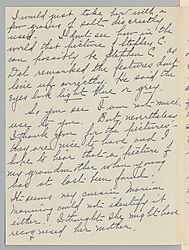 I would just take her with a
few grains of salt - discreetly
used. I don't see how in the
world that picture of Stephen C.
can possibly be Stephen C. as
Dot remarked the features don't
line up correctly. He said the
eyes look light blue or grey.
So you see I am not much
use to you. But, nevertheless
I thank you for the pictures -
they are nice to have, and I'd
like to hear that a picture of
my grandmother when young
had at last been found.
It seems my cousin Marion
Manning could not identify it
either. I thought she might have
recognised her mother.